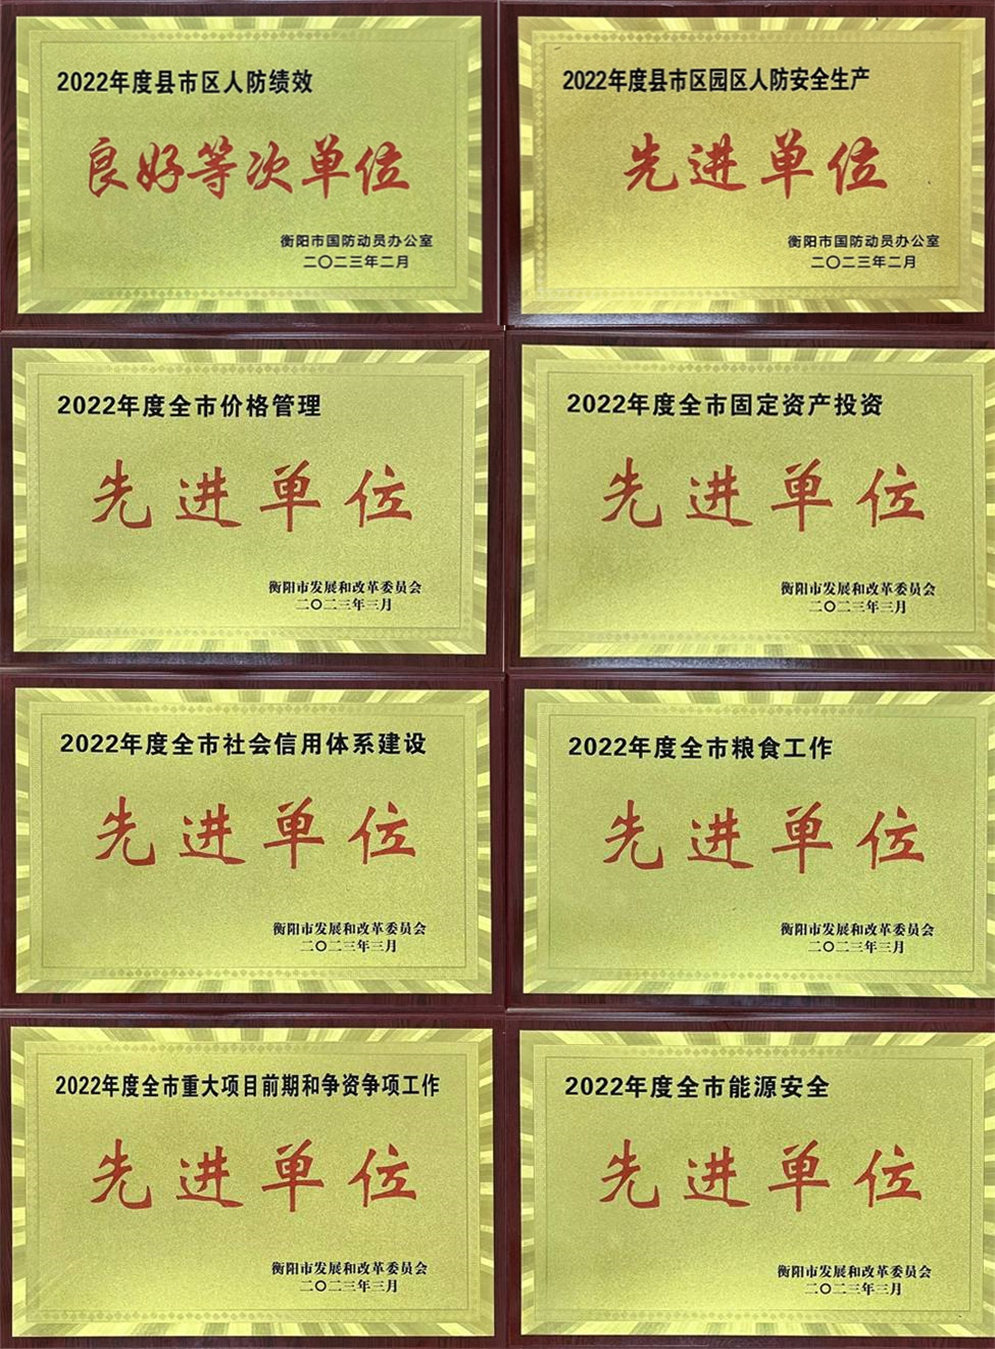 2022年度县市区人防绩效
良好等次单位
衡阳市国防动员办公室
二〇二三年二月
2022年度县市区园区人防安全生产
先进单位
衡阳市国防动员办公室
二〇二三年二月
2022年度全市价格管理
先进单位
衡阳市发展和改革委员会
二〇二三年三月
2022年度全市固定资产投资
先进单位
衡阳市发展和改革委员会
二〇二三年三月
2022年度全市社会信用体系建设
先进单位
衡阳市发展和改革委员会
二〇二三年三月
2022年度全市粮食工作
先进单位
衡阳市发展和改革委员会
二〇二三年三月
2022年度全市重大项目前期和争资争项工作
先进单位
衡阳市发展和改革委员会
二〇二三年三月
2022年度全市能源安全
先进单位
衡阳市发展和改革委员会
二〇二三年三月